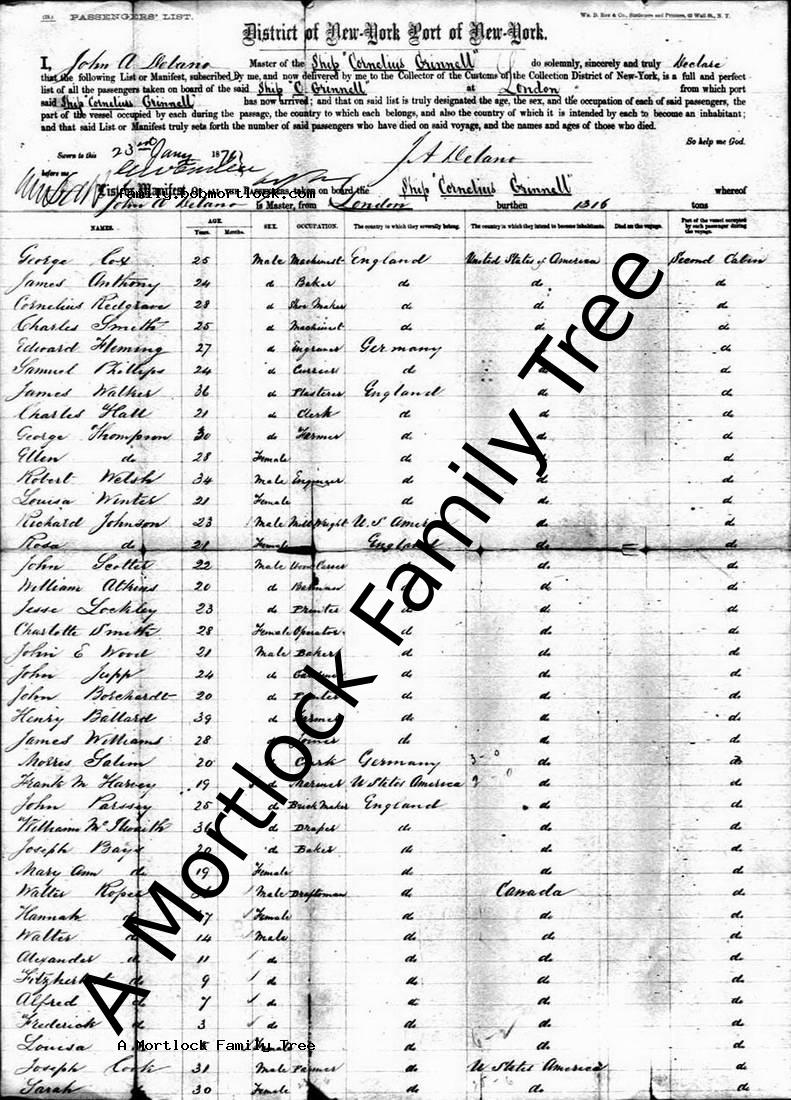 PASSENGERS' LIST.
Wm. D. Roe & Co., Stationers and Printers, 42 Wall St., N. Y.
District of New-York Port of New-York.
I, John A Delano Master of the Ship "Cornelius Grinnell" do solemnly, sincerely and truly Declare
that the following List or Manifest, subscribed by me, and now delivered by me to the Collector of the Customs of the Collection District of New-York, is a full and perfect
list of all the passengers taken on board of the said Ship "C. Grinnell" at London from which port
said Ship "Cornelius Grinnell" has now arrived; and that on said list is truly designated the age, the sex, and the occupation of each of said passengers, the
part of the vessel occupied by each during the passage, the country to which each belongs, and also the country of which it is intended by each to become an inhabitant;
and that said List or Manifest truly sets forth the number of said passengers who have died on said voyage, and the names and ages of those who died.
So help me God.
Sworn to this 23rd Jany 187
before me
J A Delano
family.bobmortlock.com
List or Manifest of all the Passengers taken on board the Ship "Cornelius Grinnell" whereof
John A Delano is Master, from London burthen 1316 tons
NAMES. AGE. Years. Months. SEX. OCCUPATION. The country to which they severally belong. The country to which they intend to become inhabitants. Died on the voyage. Part of the vessel occupied by each passenger during the voyage.
George Cox 25 Male Machinist England United States of America Second Cabin
James Anthony 24 d Baker do do do
Cornelius Redgrave 28 d Shoe Maker do do do
Charles Smith 25 d Machinist do do do
Edward Fleming 27 d Engraver Germany do do
Samuel Phillips 24 d Currier do do do
James Walker 36 d Plasterer England do do
Charles Hall 21 d Clerk do do do
George Thompson 30 do Farmer do do do
Ellen do 28 Female do do do
Robert Welsh 34 Male Engineer do do do
Louisa Winter 21 Female do do do
Richard Johnson 23 Male Mill Wright U S Amer do do
Rosa do 21 Female England do do
John Scotter 22 Male do do
William Atkins 20 d do do
Jesse Lockley 23 d Printer do do do
Charlotte Smith 28 Female Operator do do do
John E Wood 21 Male Baker do do do
John Jupp 24 d do do do
John Borchardt 20 d do do do
Henry Ballard 39 d Farmer do do do
James Williams 28 Joiner do do do
Morris Salim 20 Clerk Germany do do
Frank M Harvey 19 d U States America do do
John Parssey 25 d Brick Maker England do do
William Mc 36 d Draper do do do
Joseph Bays 20 d Baker do do do
Mary Ann do 19 Female do do do
Walter Roper Male Draftsman do Canada do
Hannah d Female do do do
Walter d 14 Male do do do
Alexander d 11 do do do do
Fitzherbert d 9 d do do do
Alfred do 7 d do do do
Frederick do 3 d do do do
Louisa Female do do do
Joseph Cook 31 Male Farmer do U States America do
Sarah do 30 Female do do do
A Mortlock Family Tree
A Mortlock Family Tree